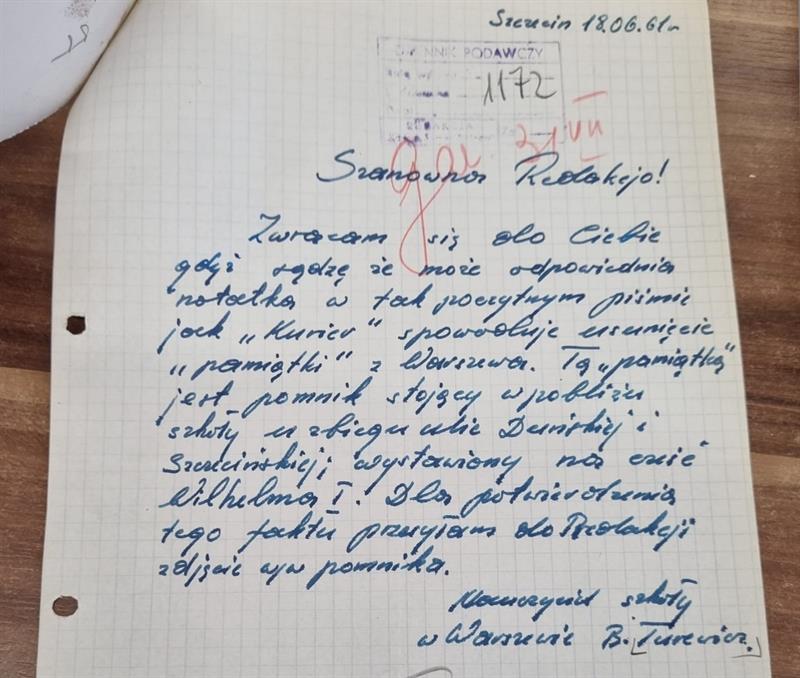 Szczecin 18.06.61r
DZIENNIK PODAWCZY
1172
21 VII
Szanowna Redakcjo!
Zwracam się do Ciebie
gdyż sądzę że może odpowiednia
notatka w tak poczytnym piśmie
jak „Kurier” spowoduje usunięcie
„pamiątki” z Warszewa. Tą „pamiątką”
jest pomnik stojący w pobliżu
szkoły u zbiegu ulic Duńskiej i
Szczecińskiej, wystawiony na cześć
Wilhelma I. Dla potwierdzenia
tego faktu przesyłam do Redakcji
zdjęcie w/w pomnika.
Nauczyciel szkoły
w Warszewie B. [Turewicz.]